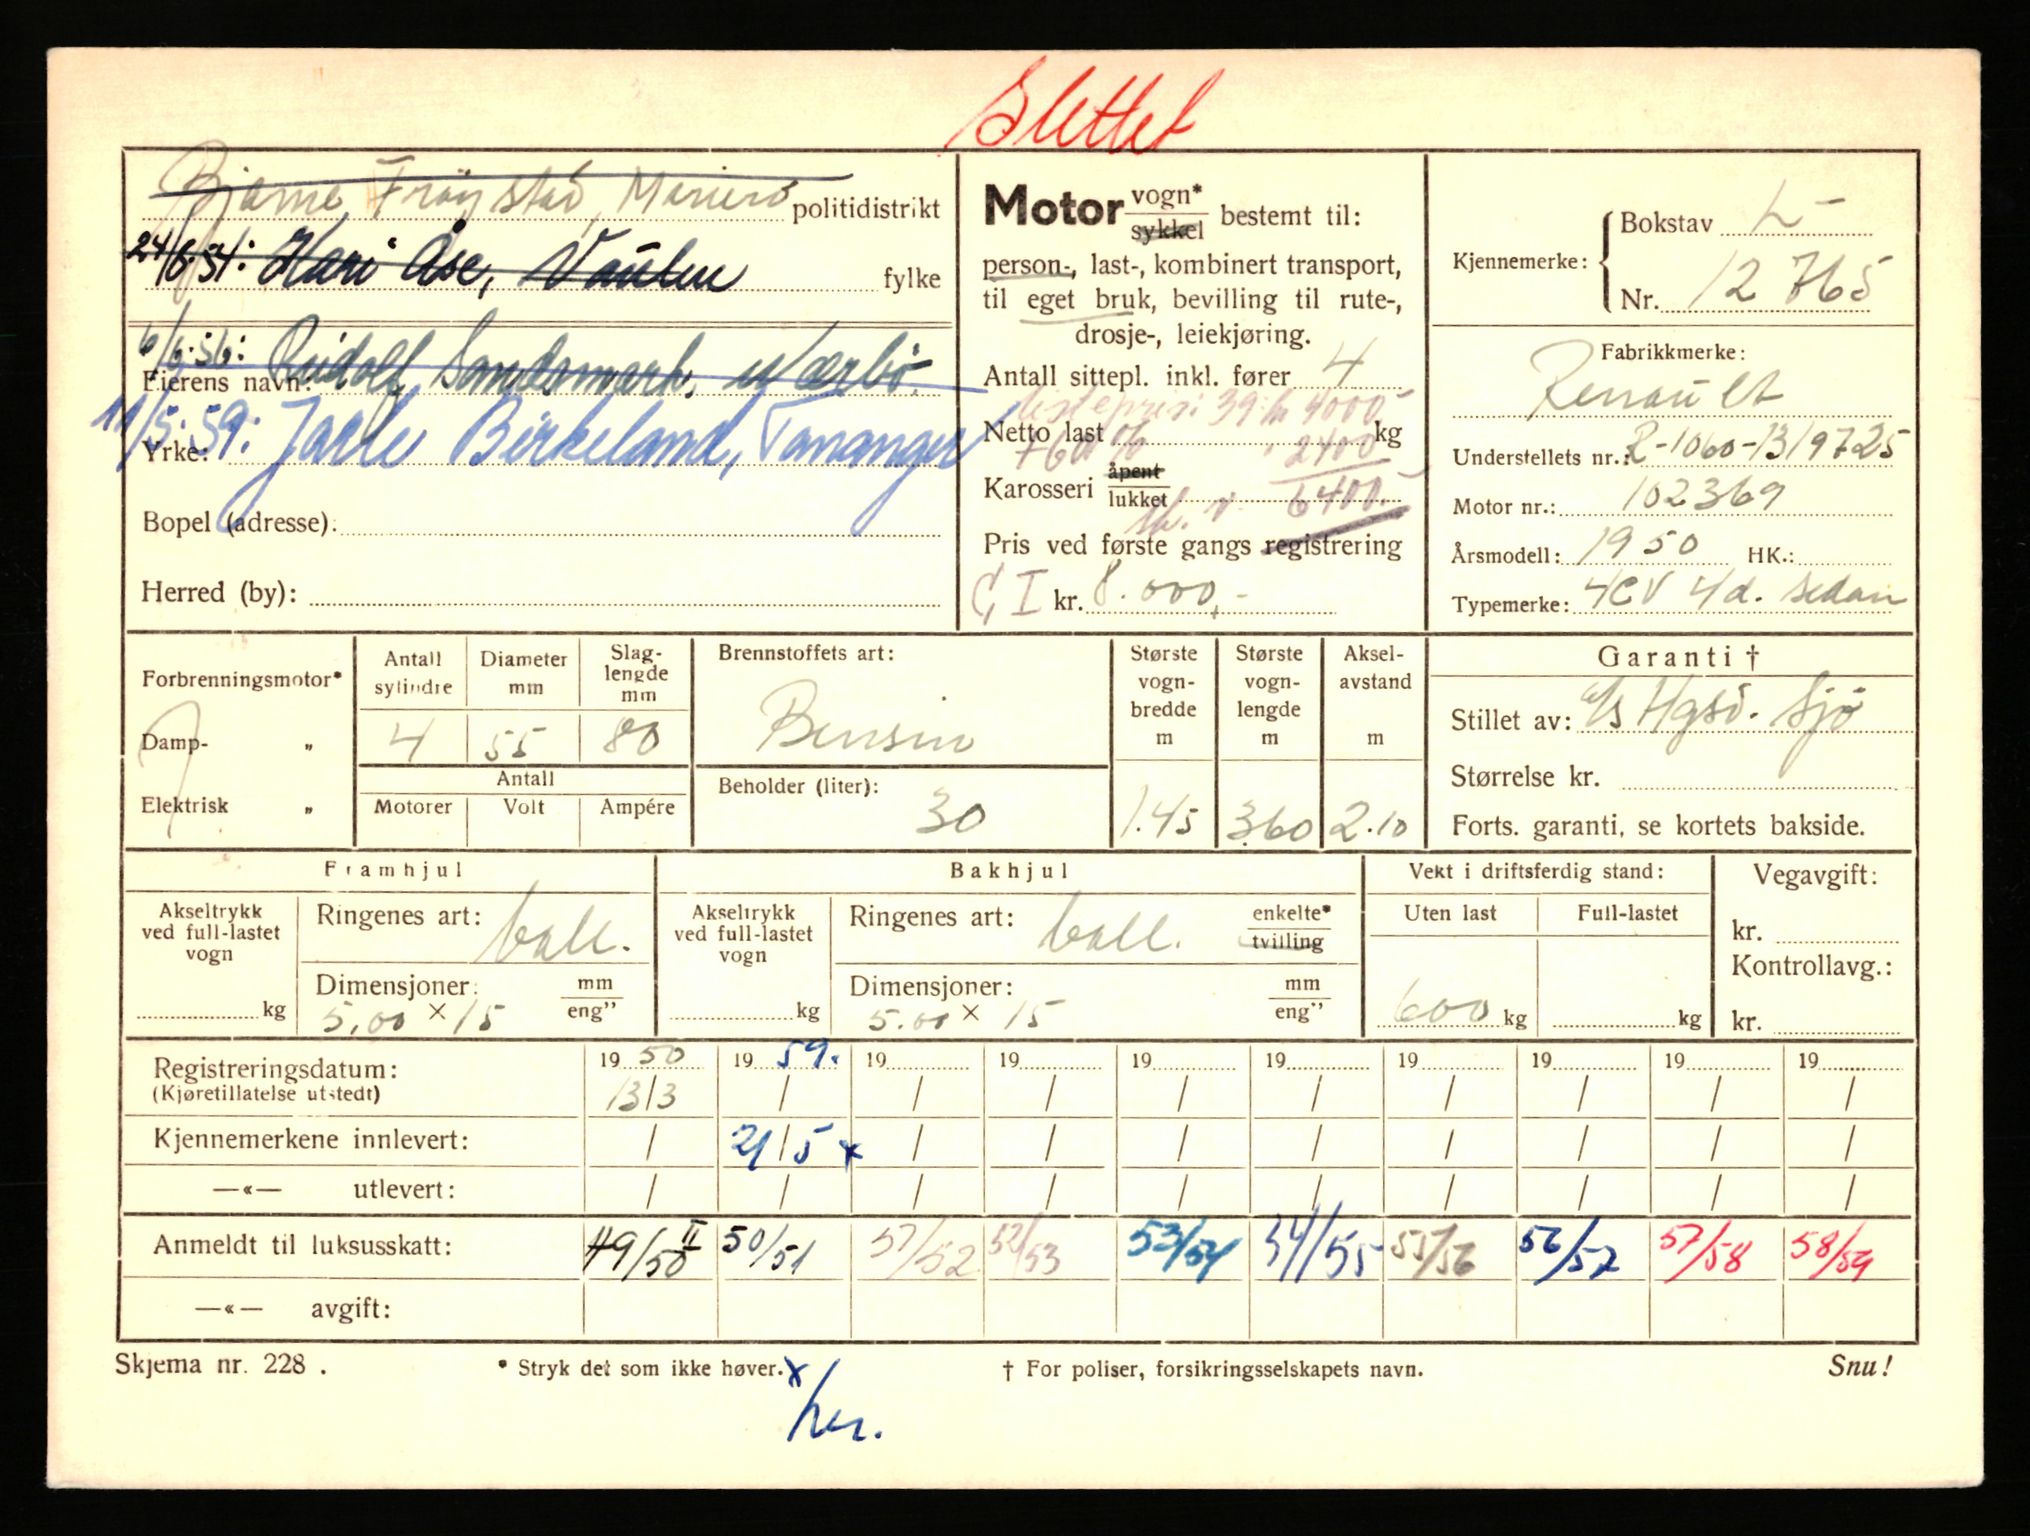 Slettet
Bjarne Frøystad, Mariero politidistrikt
24/6.54: Kari Åse, Vaulen fylke
6/6.56: Rudolf Sandsmark, Nærbø.
Eierens navn:
11/5.59: Jarle Birkeland, Tananger
Yrke:
Bopel (adresse):
Herred (by):
Motor vogn* sykkel bestemt til:
person-, last-, kombinert transport,
til eget bruk, bevilling til rute-,
drosje-, leiekjøring.
Antall sittepl. inkl. fører 4
listepris: 39: kr 4000
Netto last kg
+ 60 % " 2400
Karosseri åpent lukket
6400.-
Pris ved første gangs registrering
C I kr. 8.000,-
Kjennemerke: Bokstav L-
Nr. 12765
Fabrikkmerke:
Renault
Understellets nr.: R-1060-1319725
Motor nr.: 102369
Årsmodell: 1950 HK.:
Typemerke: 4CV 4d. sedan
Forbrenningsmotor*
Damp- „
Elektrisk „
Antall sylindre
4
Diameter mm
55
Slag-lengde mm
80
Antall
Motorer Volt Ampére
Brennstoffets art:
Bensin
Beholder (liter):
30
Største vogn-bredde m
1.45
Største vogn-lengde m
3.60
Aksel-avstand m
2.10
Garanti †
Stillet av: a/s Hgsd. Sjø
Størrelse kr.
Forts. garanti, se kortets bakside.
Framhjul
Akseltrykk ved full-lastet vogn
kg
Ringenes art: ball.
Dimensjoner: mm
5.00 × 15 eng”
Bakhjul
Akseltrykk ved full-lastet vogn
kg
Ringenes art: ball. enkelte* tvilling
Dimensjoner: mm
5.00 × 15 eng”
Vekt i driftsferdig stand:
Uten last Full-lastet
600 kg kg
Vegavgift:
kr.
Kontrollavg.:
kr.
Registreringsdatum: 19 50 19 59. 19 19 19 19 19 19 19 19
(Kjøretillatelse utstedt) 13/3 / / / / / / / / /
Kjennemerkene innlevert: / 21/5 x / / / / / / / /
—«— utlevert: / / / / / / / / / /
Anmeldt til luksusskatt: 49/50 II 50/51 51/52 52/53 53/54 54/55 55/56 56/57 57/58 58/59
—«— avgift:
Skjema nr. 228 . * Stryk det som ikke høver. † For poliser, forsikringsselskapets navn. Snu!
x/her.